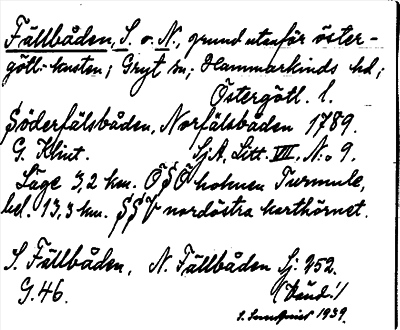 Fällbåden, S. o. N., grund utanför öster-
götl.-kusten; Gryt sn; Hammarkinds hd;
Östergötl. l.
Söderfälsbåden, Norfälsbåden 1789.
G. Klint. SjA, Litt. VII, N:o 9.
Läge 3,2 km. OSO holmen Turmule,
bel. 13,3 km. SSV nordöstra karthörnet.
S. Fällbåden, N. Fällbåden Sj. 252.
G. 46. (Länd.!)
S. Sundqvist 1939.